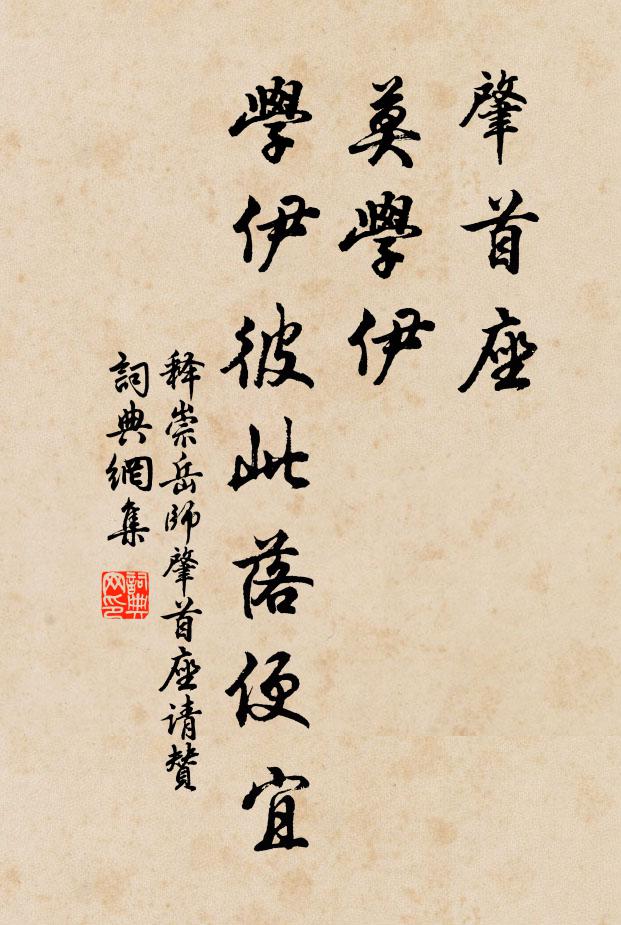 肇首座
莫學伊
學伊彼此落便宜
释崇岳師肇首座请贊
詞典網集
詞典网印